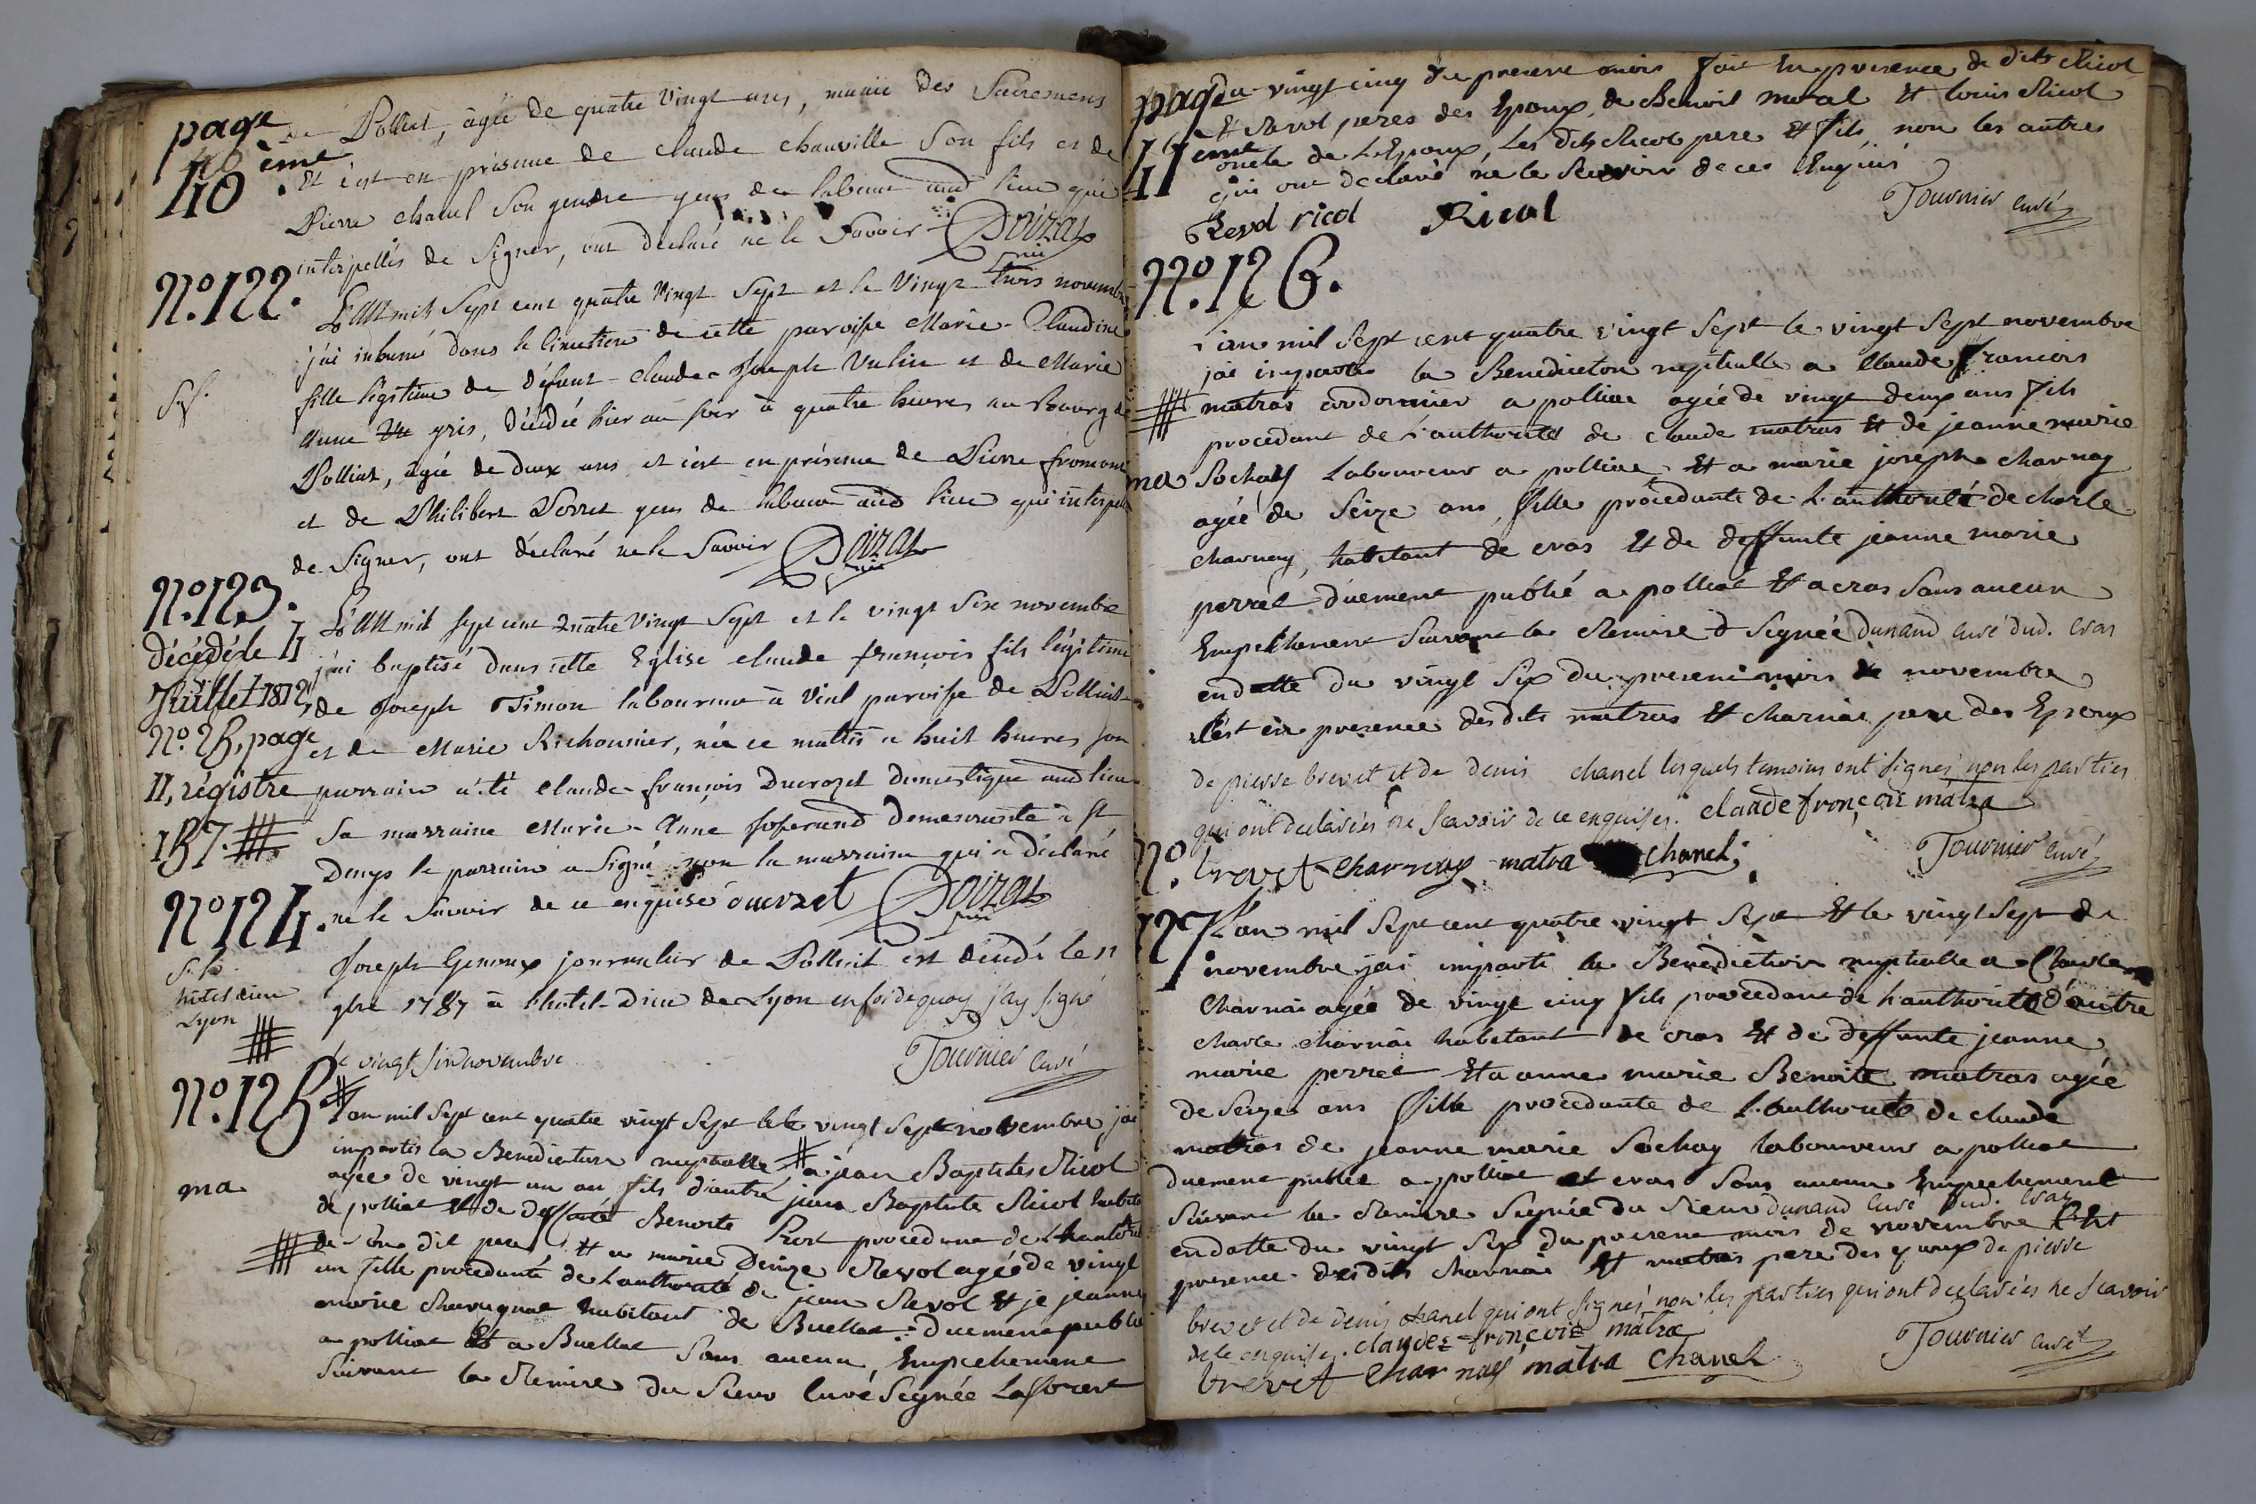 page
40 ème
de Polliat, âgée de quatre vingt ans, munie des Sacremens
Et c'est en présence de claude chauville Son fils et de
Pierre chanel Son gendre gens de labeur aud lieu qui
interpellés de Signer, ont déclaré ne le Savoir Doizat
vic
N.º 122.
L'an mil Sept cent quatre Vingt Sept et le Vingt trois novembre
j'ai inhumé dans le cimetiere de cette paroisse Marie-Claudine
fille légitime de défunt-claude-Joseph Vulin et de Marie
Anne gris, décédée hier au soir à quatre heures au Bourg de
Polliat, agée de deux ans et c'est en présence de Pierre fromont
et de Philibert Perret gens de labeur aud lieu qui interpellés
de Signer, ont déclaré ne le Savoir Doizat
vic
N.º 123.
décédé le 11
Juillet 1812,
Nº 25, page
11, régistre
137.
L'an mil Sept cent Quatre Vingt Sept et le vingt Six novembre
j'ai baptisé dans cette Eglise claude françois fils légitime
de Joseph Timon laboureur à Vial paroisse de Polliat
et de Marie Richonnier, née ce matin a huit heures son
parrain a été Claude-françois Ducrozet domestique aud lieu
Sa marraine Marie-Anne Josserand demeurante à St
Denys le parrain a Signé non la marraine qui a déclaré
ne le Savoir de ce enquise ducrozet Doizat
vic
N.º 124.
hôtel dieu
Lyon
Joseph Genoux journalier de Polliat est décédé le 11
9bre 1787 à l'hotel-Dieu de Lyon en foi de quoy j'ay signé
le vingt six novembre Tournier curé
N.º 125.
L'an mil Sept cent quatre vingt Sept et le vingt Sept novembre j'ai
impartis la Benediction nuptialle a jean Baptiste Ricol
ma
agée de vingt un an fils d'autre jean Baptiste Ricol habitant
de polliat et de deffunte Benoite procedant de l'authorité
de Son dit pere et a marie Denize Revol agée de vingt
un fille procedante de L'authorité de jean Revol et je jeanne
marie chavagnat habitant de Buellat duement publié
a polliat et a Buellat Sans aucun Empechement
Suivant la Remise du Sieur Curé Signée Laforest
page
41 ème
du vingt cinq du present mois fait En presence de dits Ricol
et Revol peres des Epoux, de Benoit moral et louis Ricol
oncle de L'Epoux, Les dits Ricol pere et fils non les autres
qui ont declaré ne le Scavoir de ce Enquis
Revol ricol Ricol Tournier curé
N.º 126.
L'an mil Sept cent quatre vingt Sept le vingt Sept novembre
jai imparti la Benediction nuptialle a Claude françois
matras cordonnier a polliat agée de vingt deux ans fils
procedant de L'authorité de claude matras et de jeanne marie
ma
Sochay Laboureur a polliat et a marie joseph charnay
agée de Seize ans, fille procedante de L'authorité de charle
charnay, habitant de cras et de deffunte jeanne marie
perret duement publié a polliat et a cras Sans aucun
Empechement Suivant la Remise Signée dunand curé dud. cras
en datte du vingt Six du present mois de novembre
C'est en presence des dits matras et charnai pere des Epoux
de pierre brevet et de denis chanel lesquels temoins ont signés non les parties
qui ont declarées ne scavoir de ce enquises. claude françois matra
brevet charnay matra chanel Tournier curé
N.º
127.
L'an mil Sept cent quatre vingt Sept et le vingt Sept de
novembre jai imparti la Benediction nuptialle a Charle
Charnai agée de vingt cinq fils procedant de L'authorité d'autre
charle charnai habitant de cras et de deffunte jeanne
marie perret et a anne marie Benoite matras agée
de Seize ans fille procedante de L'authorité de claude
matras de jeanne marie Sochay laboureur a polliat
duement publié a polliat et cras Sans aucun Empechement
Suivant la Remise Signée du Sieur dunand curé dud. cras
en datte du vingt Six du present mois de novembre C'est
presence des dits charnai et matras pere des epoux de pierre
brevet et de denis chanel qui ont signés non les parties qui ont declarées ne scavoir
de ce enquises. claude françoiz matra
brevet charnay matra chanel Tournier curé